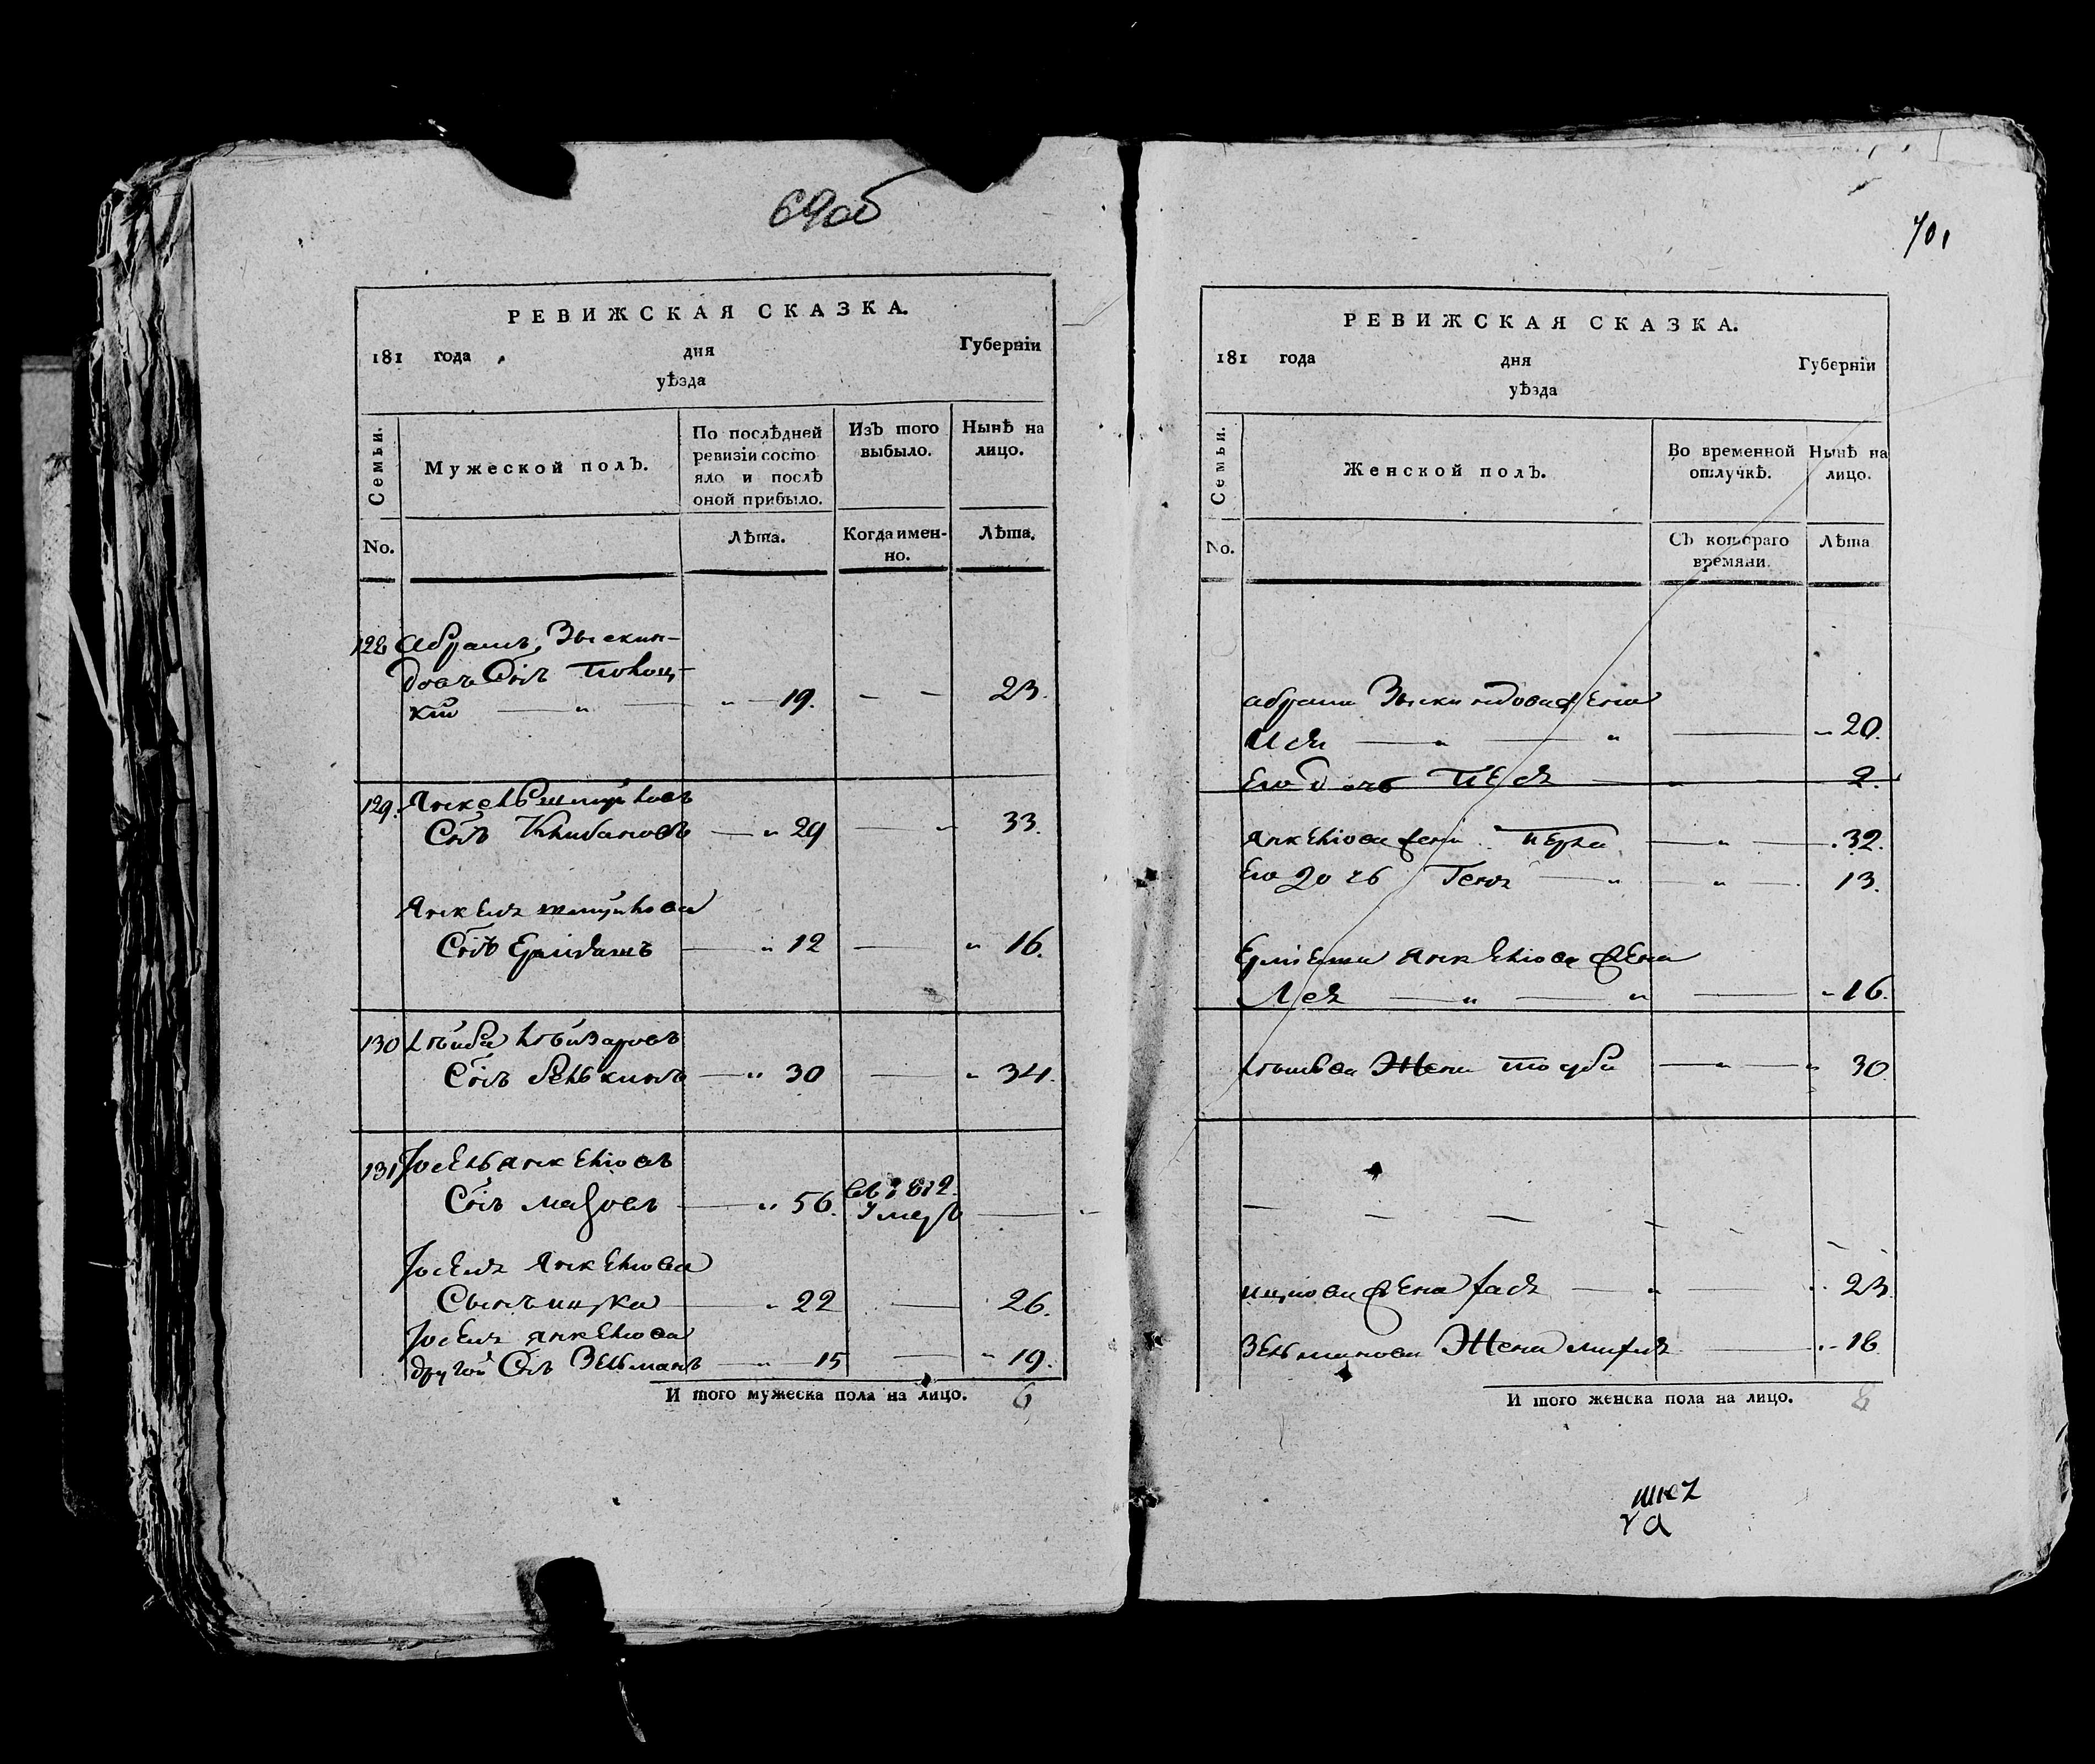 69об
РЕВИЖСКАЯ СКАЗКА.
181 года дня Губернiи
уѣзда
Семьи.
Мужеской полъ.
По послѣдней ревизiи состо
яло и послѣ оной прибыло.
Изъ того выбыло.
Нынѣ на лицо.
No.
Лѣта.
Когда имен-
но.
Лѣта.
128 Абрамъ Зыскин-
довъ Сынъ
кiй 19. 23.
129. Янкель Шмуйловъ
Сынъ 29 33.
Янкеля Шмуйлова
Сынъ 12 16.
130 Лейба Лейзаровъ
Сынъ 30 34.
131 Iосель Янкелiовъ
Сынъ 56. въ 1812.
умеръ
Iоселя Янкелiова
Сынъ Ицка 22 26.
Iоселя Янкелiова
другой Сынъ Зельманъ 15 19.
И того мужеска пола на лицо. 6
70
РЕВИЖСКАЯ СКАЗКА.
181 года дня Губернiи
уѣзда
Семьи.
Женской полъ.
Во временной отлучкѣ.
Нынѣ на лицо.
No.
Съ котораго времяни.
Лѣта
Абрама Зыскиндова жена
20.
Его дочь Песя 2.
Янкелiова жена Перла 32.
Его дочь Геня 13.
Янкелiова жена
Лея 16.
Жена Тауба 30
Ицкова жена Хася 23
Зельманова Жена 18
И того женска пола на лицо. 8